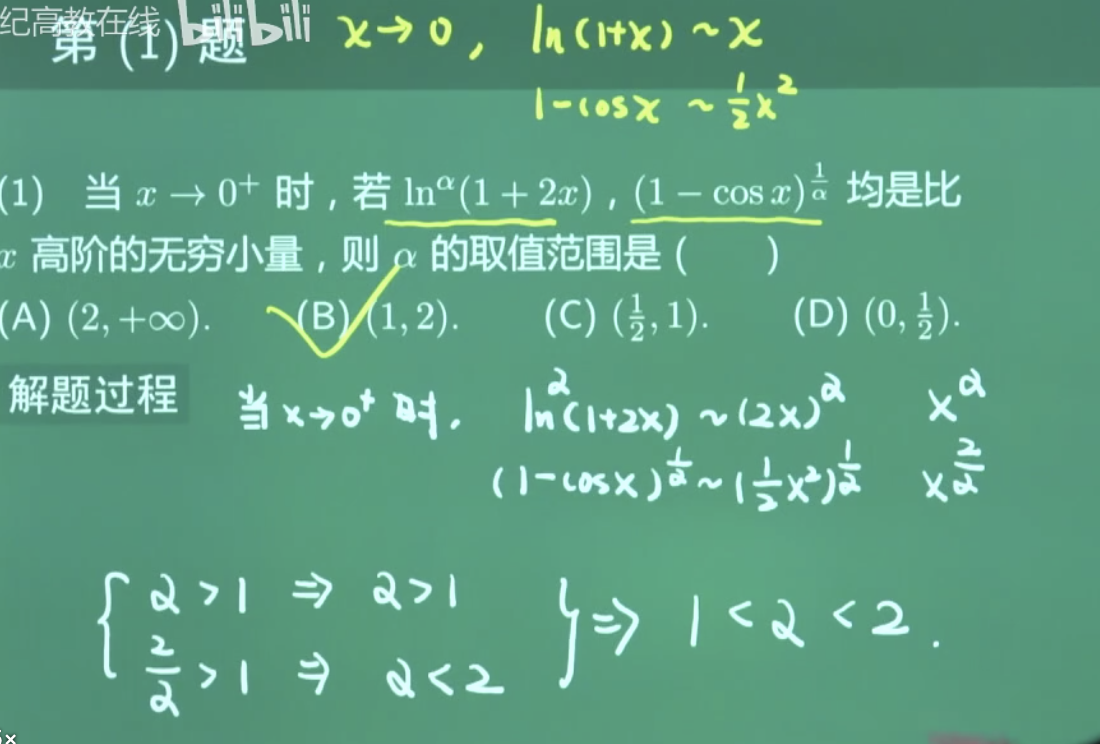 纪高教在线 bilibili
第 (1) 题 x→0, ln(1+x) ~ x
1-cosx ~ 1/2 x²
(1) 当 x → 0⁺ 时，若 ln^α(1 + 2x)，(1 − cos x)^(1/α) 均是比
x 高阶的无穷小量，则 α 的取值范围是 (  )
(A) (2, +∞). (B) (1, 2). (C) (1/2, 1). (D) (0, 1/2).
解题过程 当 x→0⁺ 时, ln^α(1+2x) ~ (2x)^α x^α
(1-cosx)^(1/α) ~ (1/2 x²)^(1/α) x^(2/α)
{ α > 1 ⇒ α > 1
2/α > 1 ⇒ α < 2 } ⇒ 1 < α < 2.